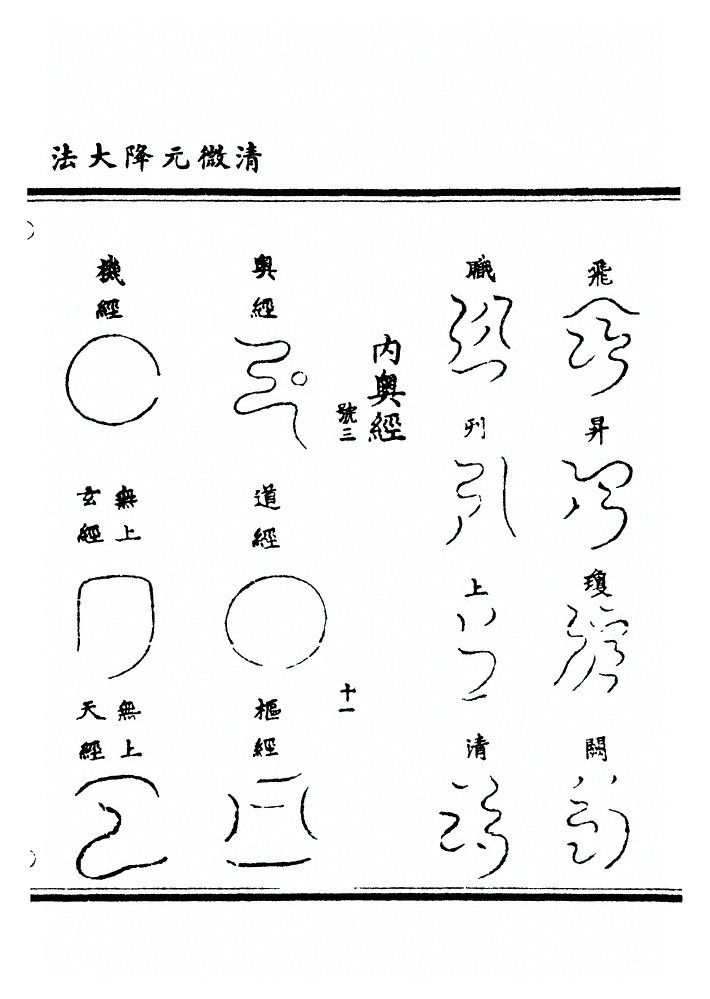 清微元降大法
飛
昇
瓊
闕
職
列
上
清
內奧經
號三
十一
奧經
道經
樞經
機經
無上玄經
無上天經